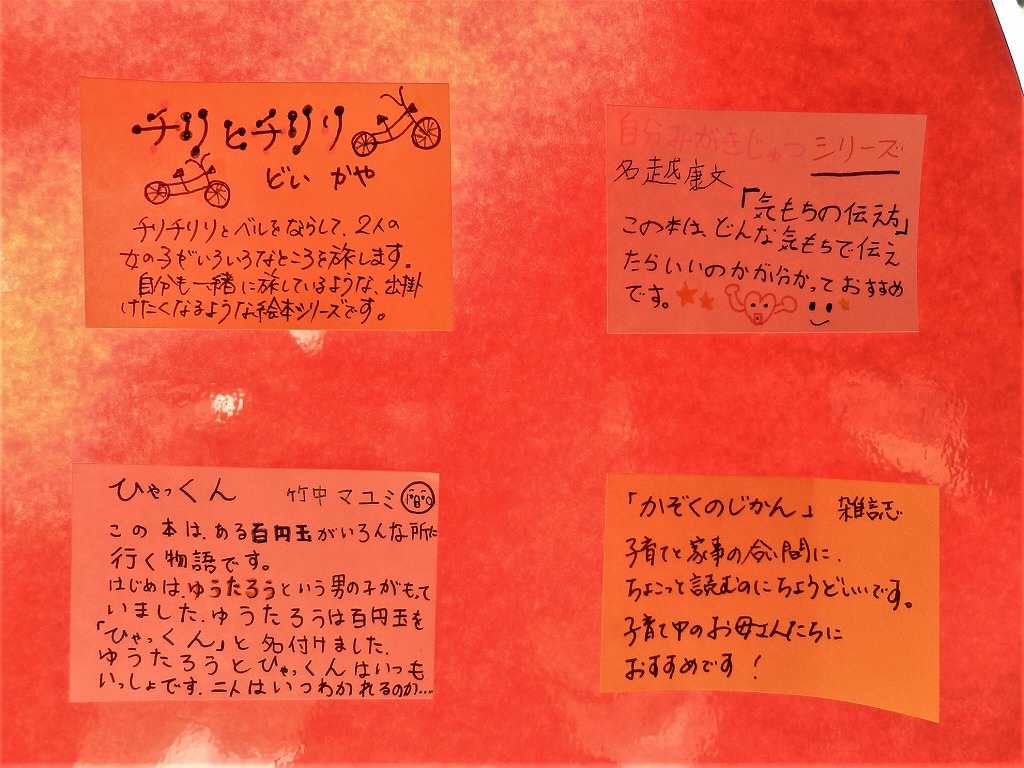 チリとチリリ
どい かや
チリチリリとベルをならして、2人の
女の子がいろいろなところを旅します。
自分も一緒に旅しているような、出掛
けたくなるような絵本シリーズです。
自分みがきじゅつ シリーズ
名越康文
「気もちの伝え方」
この本は、どんな気もちで伝え
たらいいのかが分かっておすすめ
です。
ひゃっくん 竹中マユミ
この本は、ある百円玉がいろんな所に
行く物語です。
はじめは、ゆうたろうという男の子がもって
いました。ゆうたろうは百円玉を
「ひゃっくん」と名付けました。
ゆうたろうとひゃっくんはいつも
いっしょです。二人はいつわかれるのか…
「かぞくのじかん」 雑誌
子育てと家事の合い間に、
ちょこっと読むのにちょうどいいです。
子育て中のお母さんたちに
おすすめです!